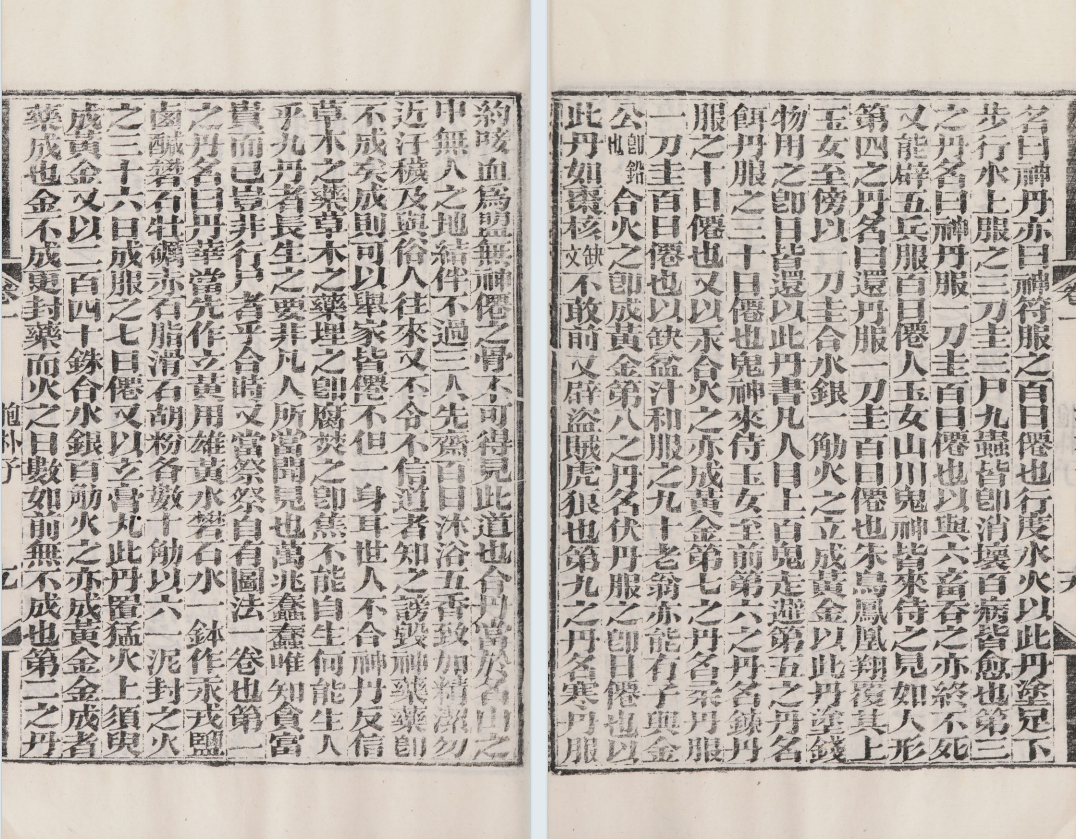 約唼血爲盟無神僊之骨不可得見此道也合丹當於名山之
中無人之地結伴不過三人先齋百日沐浴五香致加精潔勿
近汙穢及與俗人往來又不令不信道者知之謗毀神藥藥卽
不成矣成則可以舉家皆僊不但一身耳世人不合神丹反信
草木之藥草木之藥埋之卽腐焚之卽焦不能自生何能生人
乎九丹者長生之要非凡人所當聞見也萬兆蠢蠢唯知貪富
貴而已豈非行尸者乎合時又當祭祭自有圖法一卷也第一
之丹名曰丹華當先作玄黃用雄黃水礬石水一鉢作汞戎鹽
鹵鹹礬石牡礪赤石脂滑石胡粉各數十觔以六一泥封之火
之三十六日成服之七日僊又以玄膏丸此丹置猛火上須臾
成黃金又以二百四十銖合水銀百觔火之亦成黃金金成者
藥成也金不成更封藥而火之日數如前無不成也第二之丹
卷一 抱朴子 九
名曰神丹亦曰神符服之百日僊也行度水火以此丹塗足下
步行水上服之三刀圭三尸九蟲皆卽消壞百病皆愈也第三
之丹名曰神丹服一刀圭百日僊也以與六畜吞之亦終不死
又能辟五兵服百日僊人玉女山川鬼神皆來侍之見如人形
第四之丹名曰還丹服一刀圭百日僊也朱鳥鳳凰翔覆其上
玉女至傍以一刀圭合水銀一觔火之立成黃金以此丹塗錢
物用之卽日皆還以此丹書凡人目上百鬼走避第五之丹名
餌丹服之三十日僊也鬼神來侍玉女至前第六之丹名鍊丹
服之十日僊也又以汞合火之亦成黃金第七之丹名柔丹服
一刀圭百日僊也以缺盆汁和服之九十老翁亦能有子與金
公卽鉛也合火之卽成黃金第八之丹名伏丹服之卽日僊也以
此丹如棗核缺文不敢前又辟盜賊虎狼也第九之丹名寒丹服
卷一